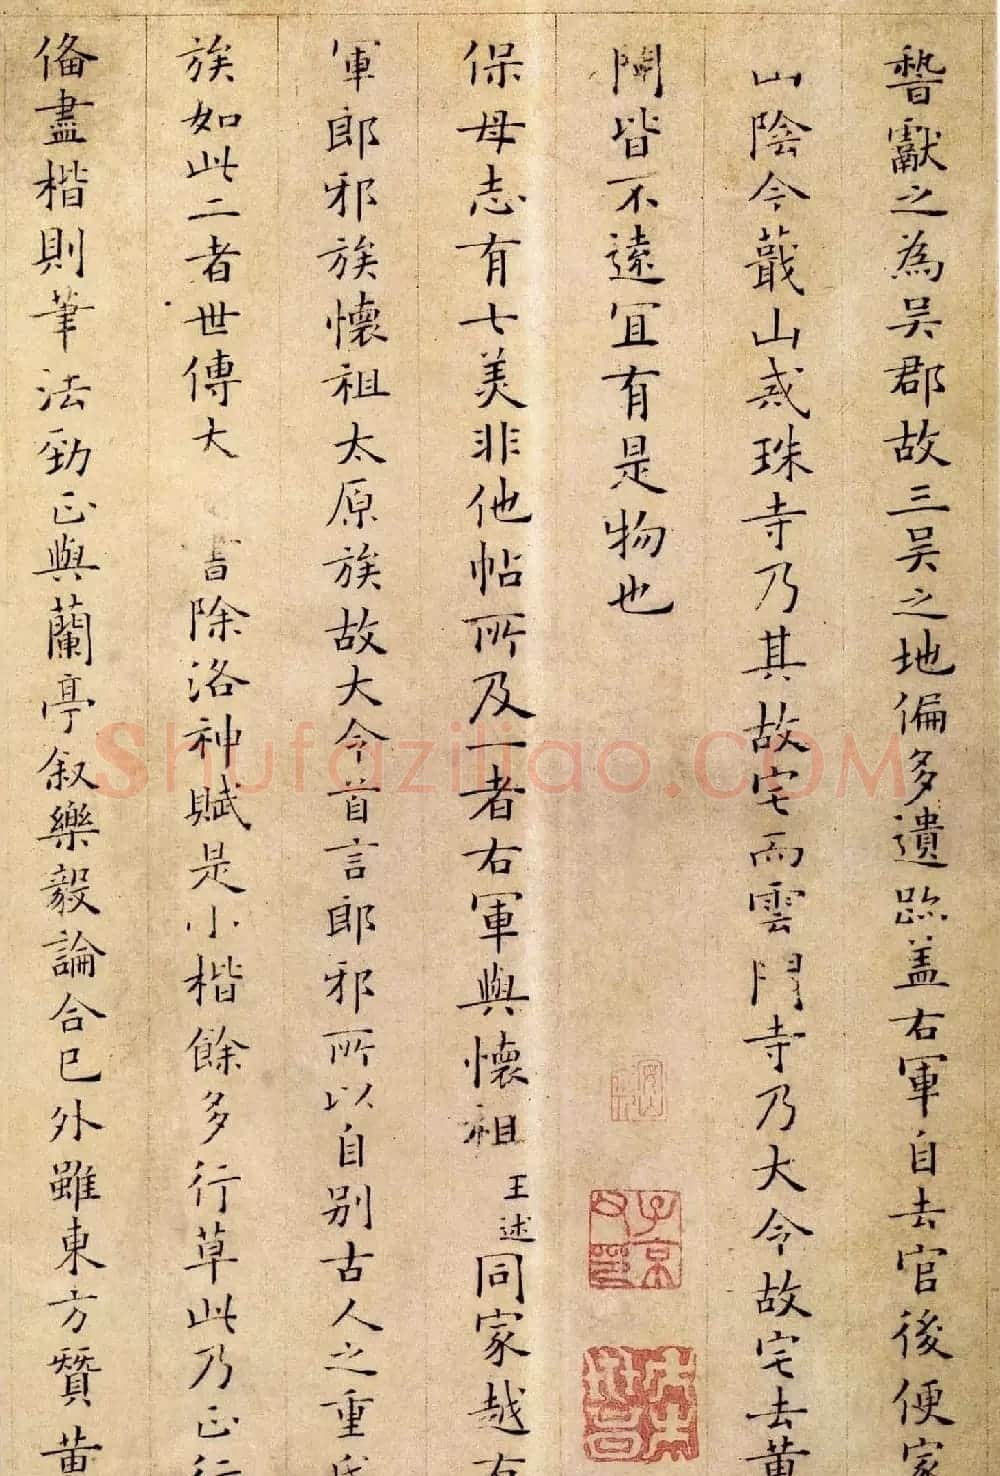 晉獻之為吳郡故三吳之地偏多遺跡盖右軍自去官後便家
山陰今蕺山戒珠寺乃其故宅而雲門寺乃大令故宅去黄
閍皆不遠宜有是物也
保母志有七美非他帖所及一者右軍與懷祖王述同家越右
軍郎邪族懷祖太原族故大令首言郎邪所以自别古人之重氏
族如此二者世傳大 書除洛神賦是小楷餘多行草此乃正行
俻盡楷則筆法勁正與蘭亭叙樂毅論合已外雖東方贊黄
子京
shufaziliao.COM